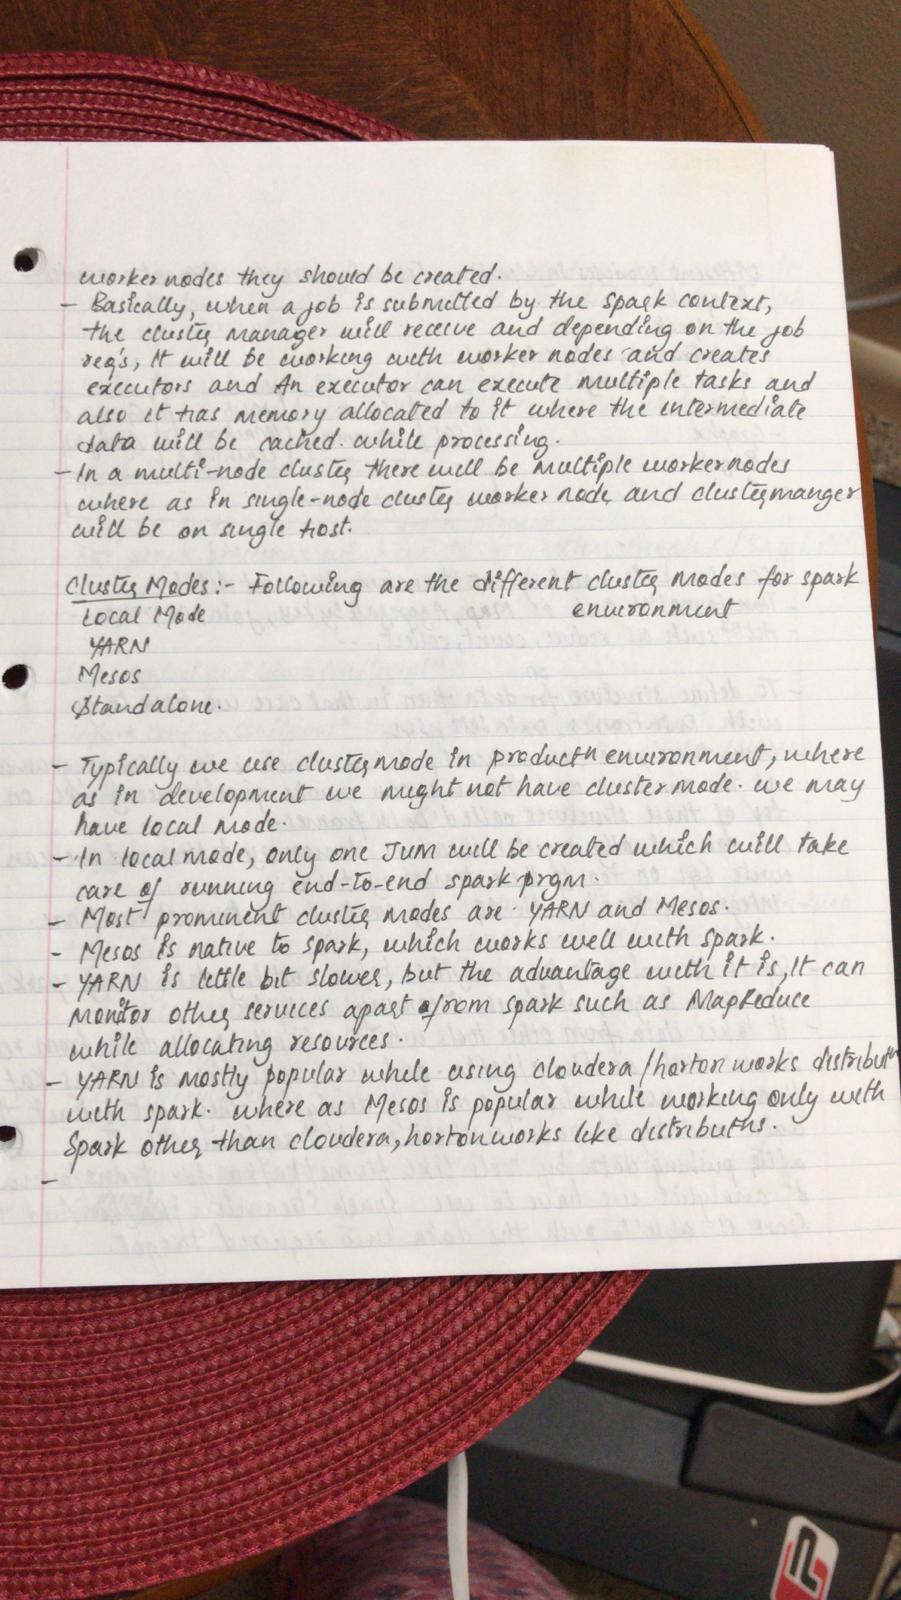 worker nodes they should be created.
- Basically, when a job is submitted by the spark context,
the cluster manager will receive and depending on the job
req's, It will be working with worker nodes and creates
executors and An executor can execute multiple tasks and
also it has memory allocated to it where the intermediate
data will be cached. while processing.
- In a multi-node cluster there will be multiple worker nodes
where as in single-node cluster worker node and cluster manger
will be on single host.
Cluster Modes:- Following are the different cluster modes for spark
environment
Local Mode
YARN
Mesos
Standalone.
- Typically we use cluster mode in productn environment, where
as in development we might not have cluster mode. we may
have local mode.
- In local mode, only one JVM will be created which will take
care of running end-to-end spark prgm.
- Most prominent cluster modes are YARN and Mesos.
- Mesos is native to spark, which works well with spark.
- YARN is little bit slower, but the advantage with it is, It can
monitor other services apart from spark such as MapReduce
while allocating resources.
- YARN is mostly popular while using cloudera/horton works distributn
with spark. where as Mesos is popular while working only with
Spark other than cloudera, hortonworks like distributns.
-